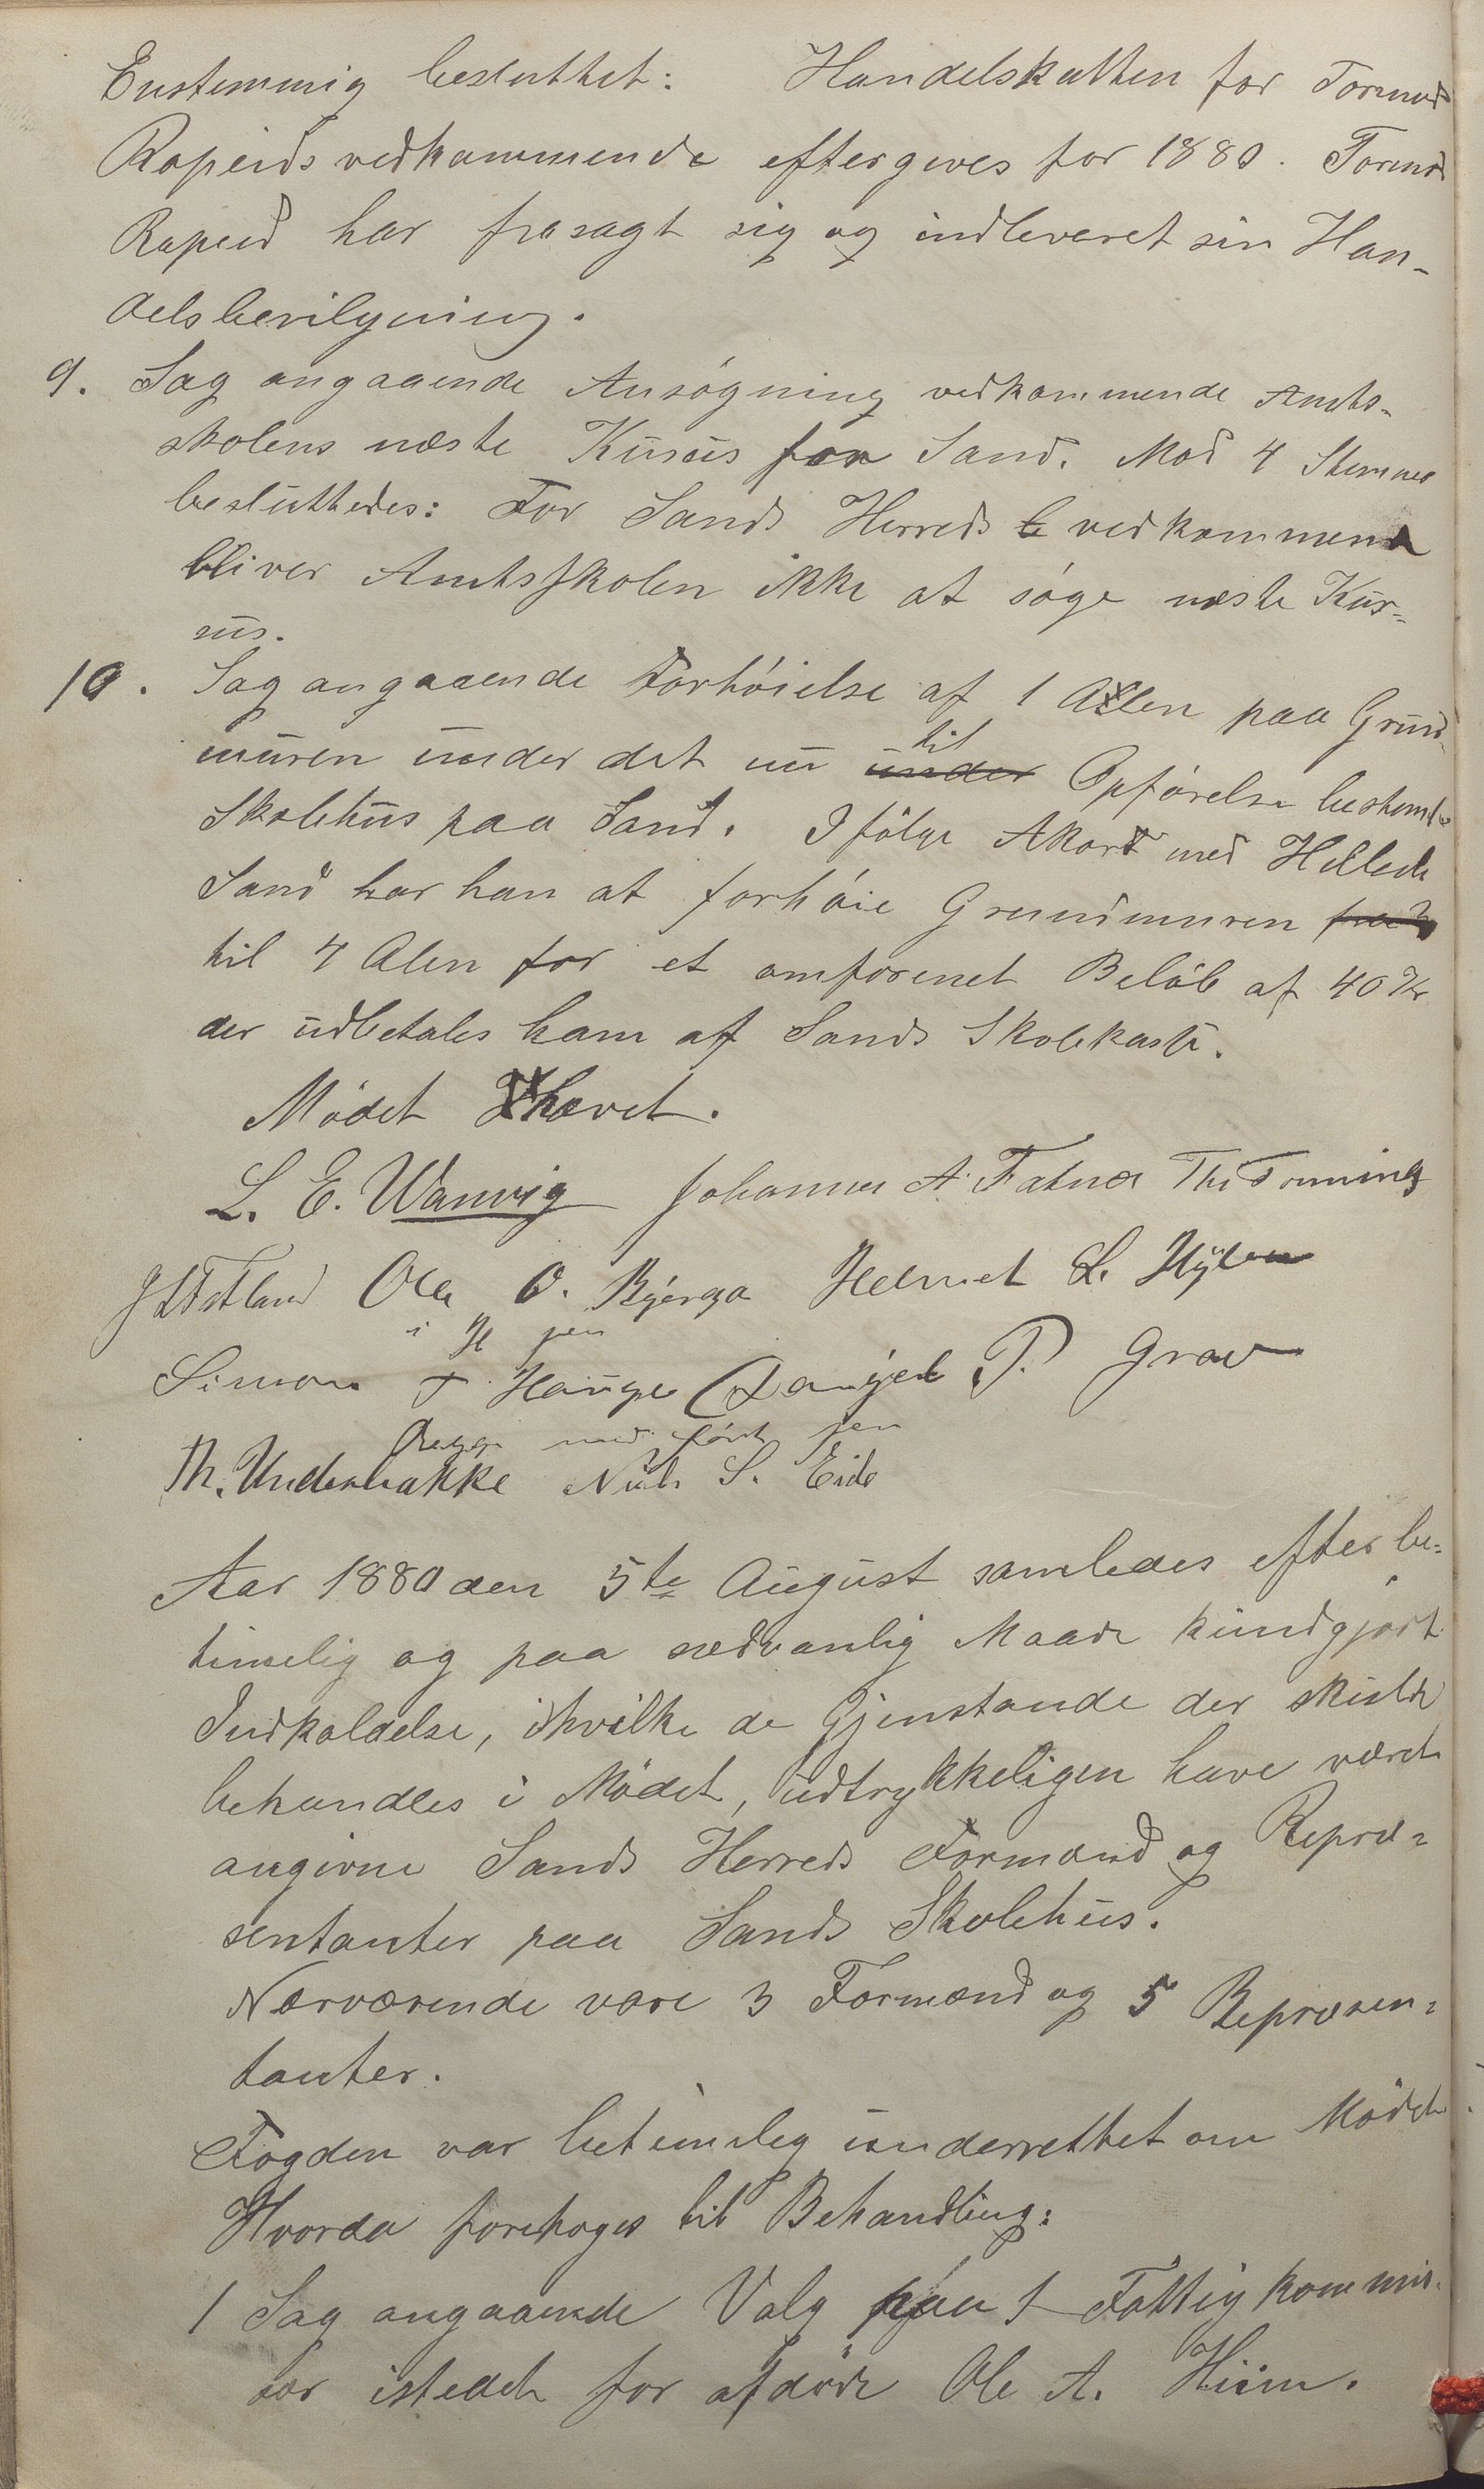 Enstemmig besluttet: Handelskatten for Tormod
Rapeids vedkommende eftergives for 1880. Tormod
Rapeid har frasagt sig og indleveret sin Han-
delsbevilgning.
9. Sag angaaende Ansøgning vedkommende Amts-
skolens næste Kursus for Sand. Mod 4 Stemmer
besluttedes: For Sands Herreds vedkommende
bliver Amtsskolen ikke at søge næste Kur-
sus.
10. Sag angaaende Forhøielse af 1 Alen paa Grund-
muren under det nu under til Opførelse bestemte
Skolehus paa Sand. Ifølge Akord med Helleik
Sand har han at forhøie Grundmuren fra 3
til 4 Alen for et omforenet Beløb af 40 Kr
der udbetales ham af Sands Skolekasse.
Mødet hævet.
L. E. Wanvig Johannes A. Fatnes Th. Tonning
Ole O. Bjerga Helmet L. Hylen
i H pen
Simon T Hauge Daniel P. Grov
med ført pen
Th. Underbakke Nils S. Eide
Aar 1880 den 5te August samledes efter be-
timelig og paa sædvanlig Maade kundgjort
Indkaldelse, i hvilke de Gjenstande der skulde
behandles i Mødet, udtrykkeligen have været
angivne Sands Herreds Formænd og Repræ-
sentanter paa Sands Skolehus.
Nærværende vare 3 Formænd og 5 Repræsen-
tanter.
Fogden var betimelig underrettet om Mødet
Hvorda foretoges til Behandling:
1 Sag angaaende Valg paa 1 Fattigkommis-
sær istedet for afdøde Ole A. Hiim.